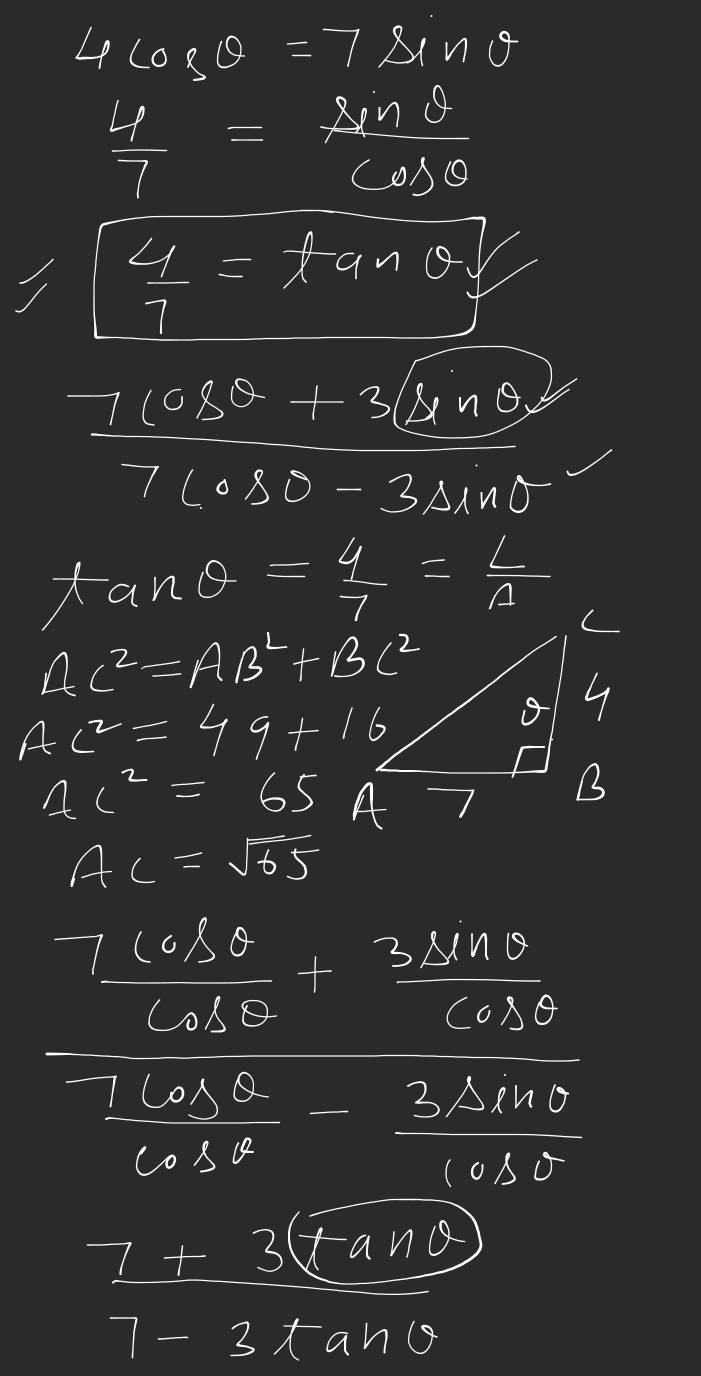 4 cos θ = 7 sin θ
4/7 = sin θ / cos θ
4/7 = tan θ
7 cos θ + 3 sin θ
7 cos θ - 3 sin θ
tan θ = 4/7 = L/A
AC² = AB² + BC²
C
AC² = 49 + 16
θ 4
AC² = 65
A 7 B
AC = √65
7 cos θ / cos θ + 3 sin θ / cos θ
7 cos θ / cos θ - 3 sin θ / cos θ
7 + 3 tan θ
7 - 3 tan θ